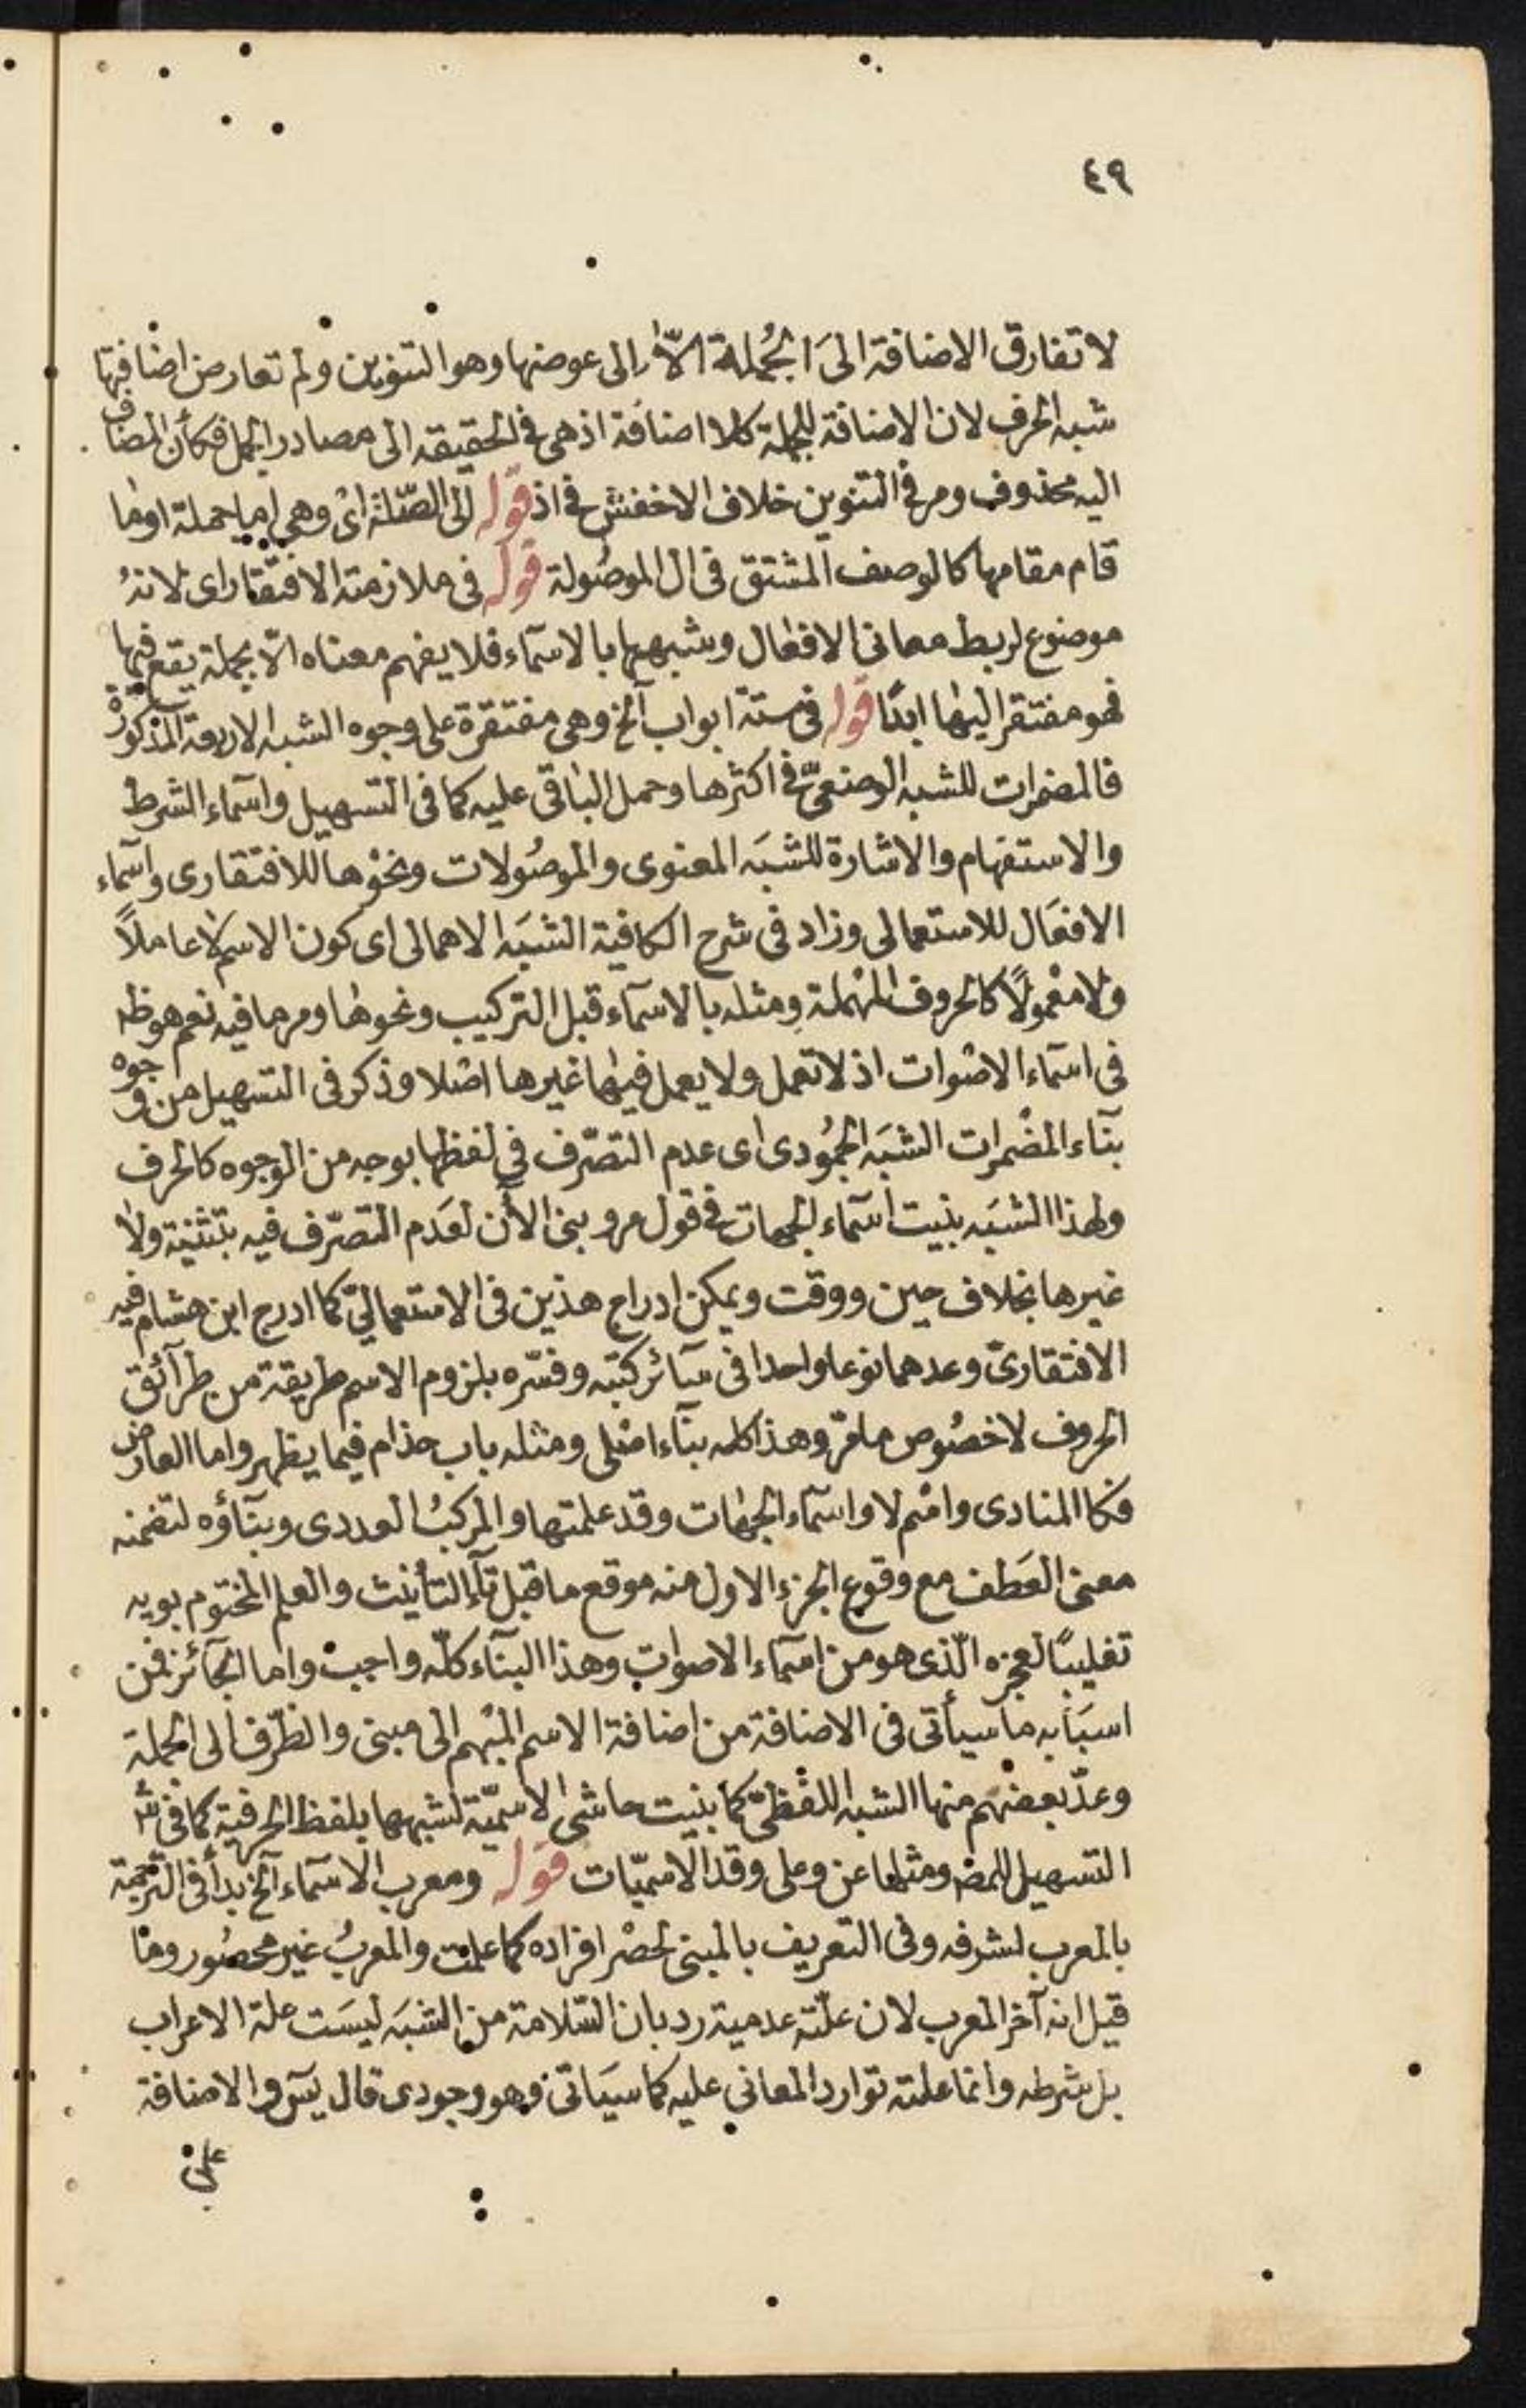 ٤٩
لا تفارق الاضافة الىَ الجُملة الّا الى عوضها وهو التنوين ولم تعارض اضافتها
شبه الحرف لان الاضافة للجملة كلا اضافة اذ هى فى الحقيقه الى مصادر الجمل فكأن المضاف
اليه محذوف ومر فى التنوين خلاف الاخفش فى اذ قوله الى الصّلة اى وهى اما جملة او ما
قام مقامها كالوصف المشتق فى ال الموصُولة قوله فى ملازمة الافتقار اى لانهُ
موضوع لربط معانى الافعال وشبهها بالاسمآء فلا يفهم معناه الّا بجملة يقع فيها
فهو مفتقر اليها ابدًا قوله فى ستة ابواب آلخ وهى مفتقرة على وجوه الشبه الاربعة المذكورة
فالمضمرات للشبه الوضعىّ فى اكثرها وحمل الباقى عليه كما فى التسهيل واسمآء الشرط
والاستفهام والاشارة للشبَه المعنوى والموصُولات ونحوْها للافتقارى واسمآء
الافعَال للاستعمالى وزاد فى شرح الكافية الشبَه الاهمالى اى كون الاسم لا عاملاً
ولا معْمولًا كالحروف المهْملة ومثله بالاسمآء قبل التركيب ونحوها ومر ما فيه نعم هو ظه
فى اسمآء الاصْوات اذ لا تعمل ولا يعمل فيها غيرها اصْلا وذكر فى التسهيل من وجوه
بنآء المضْمرات الشبَه الجمُودى اى عدم التصّرف فى لفظها بوجه من الوجوه كالحرف
ولهذا الشبَه بنيت اسمآء الجهات فى قول مر وبنى الأن لعَدم التصّرف فيه بتثنية ولا
غيرها بخلاف حين ووقت ويمكن ادراج هذين فى الاستعمالىّ كما ادرج ابن هشام فيه
الافتقارىّ وعدهما نوعا واحدا فى سآئر كتبه وفسّره بلزوم الاسم طريقة من طرآئق
الحروف لا خصُوص ما مرّ وهذا كله بنآء اصْلى ومثله باب حذام فيما يظهر واما العارض
فكا المنادى واسْم لا واسمآء الجهات وقد علمتها والمركبُ العددى وبنآؤه لتضمنه
معنى العَطف مع وقوع الجزء الاول منه موقع ما قبل تآء التأنيث والعلم المختوم بويه
تغليبًا لعجزه الّذى هو من اسمآء الاصوات وهذا البنآء كلّه واجبْ واما الجآئز فمن
اسبَابه ما سيأتى فى الاضافة من اضافة الاسم المبْهم الى مبنى والظّرف الى الجملة
وعدّ بعضهم منها الشبه اللفْظىّ كما بنيت حاشى الاسميّة لشبهها بلفظ الحرفية كما فى ش
التسهيل للمص ومثلها عن وعلى وقد الاسميّات قوله ومعرب الاسمآء آلخ بدأ فى الترجمة
بالمعرب لشرفه وفى التعريف بالمبنى لحصْر افراده كما علمْت والمعربُ غير محصُور وما
قيل انه آخر المعرب لان علّته عدمية رد بان السّلامة من الشبَه ليسَت علة الاعراب
بل شرطه وانما علته توارد المعاني عليه كما سيَاتى وهو وجودى قال يسٓ والاضافة
على